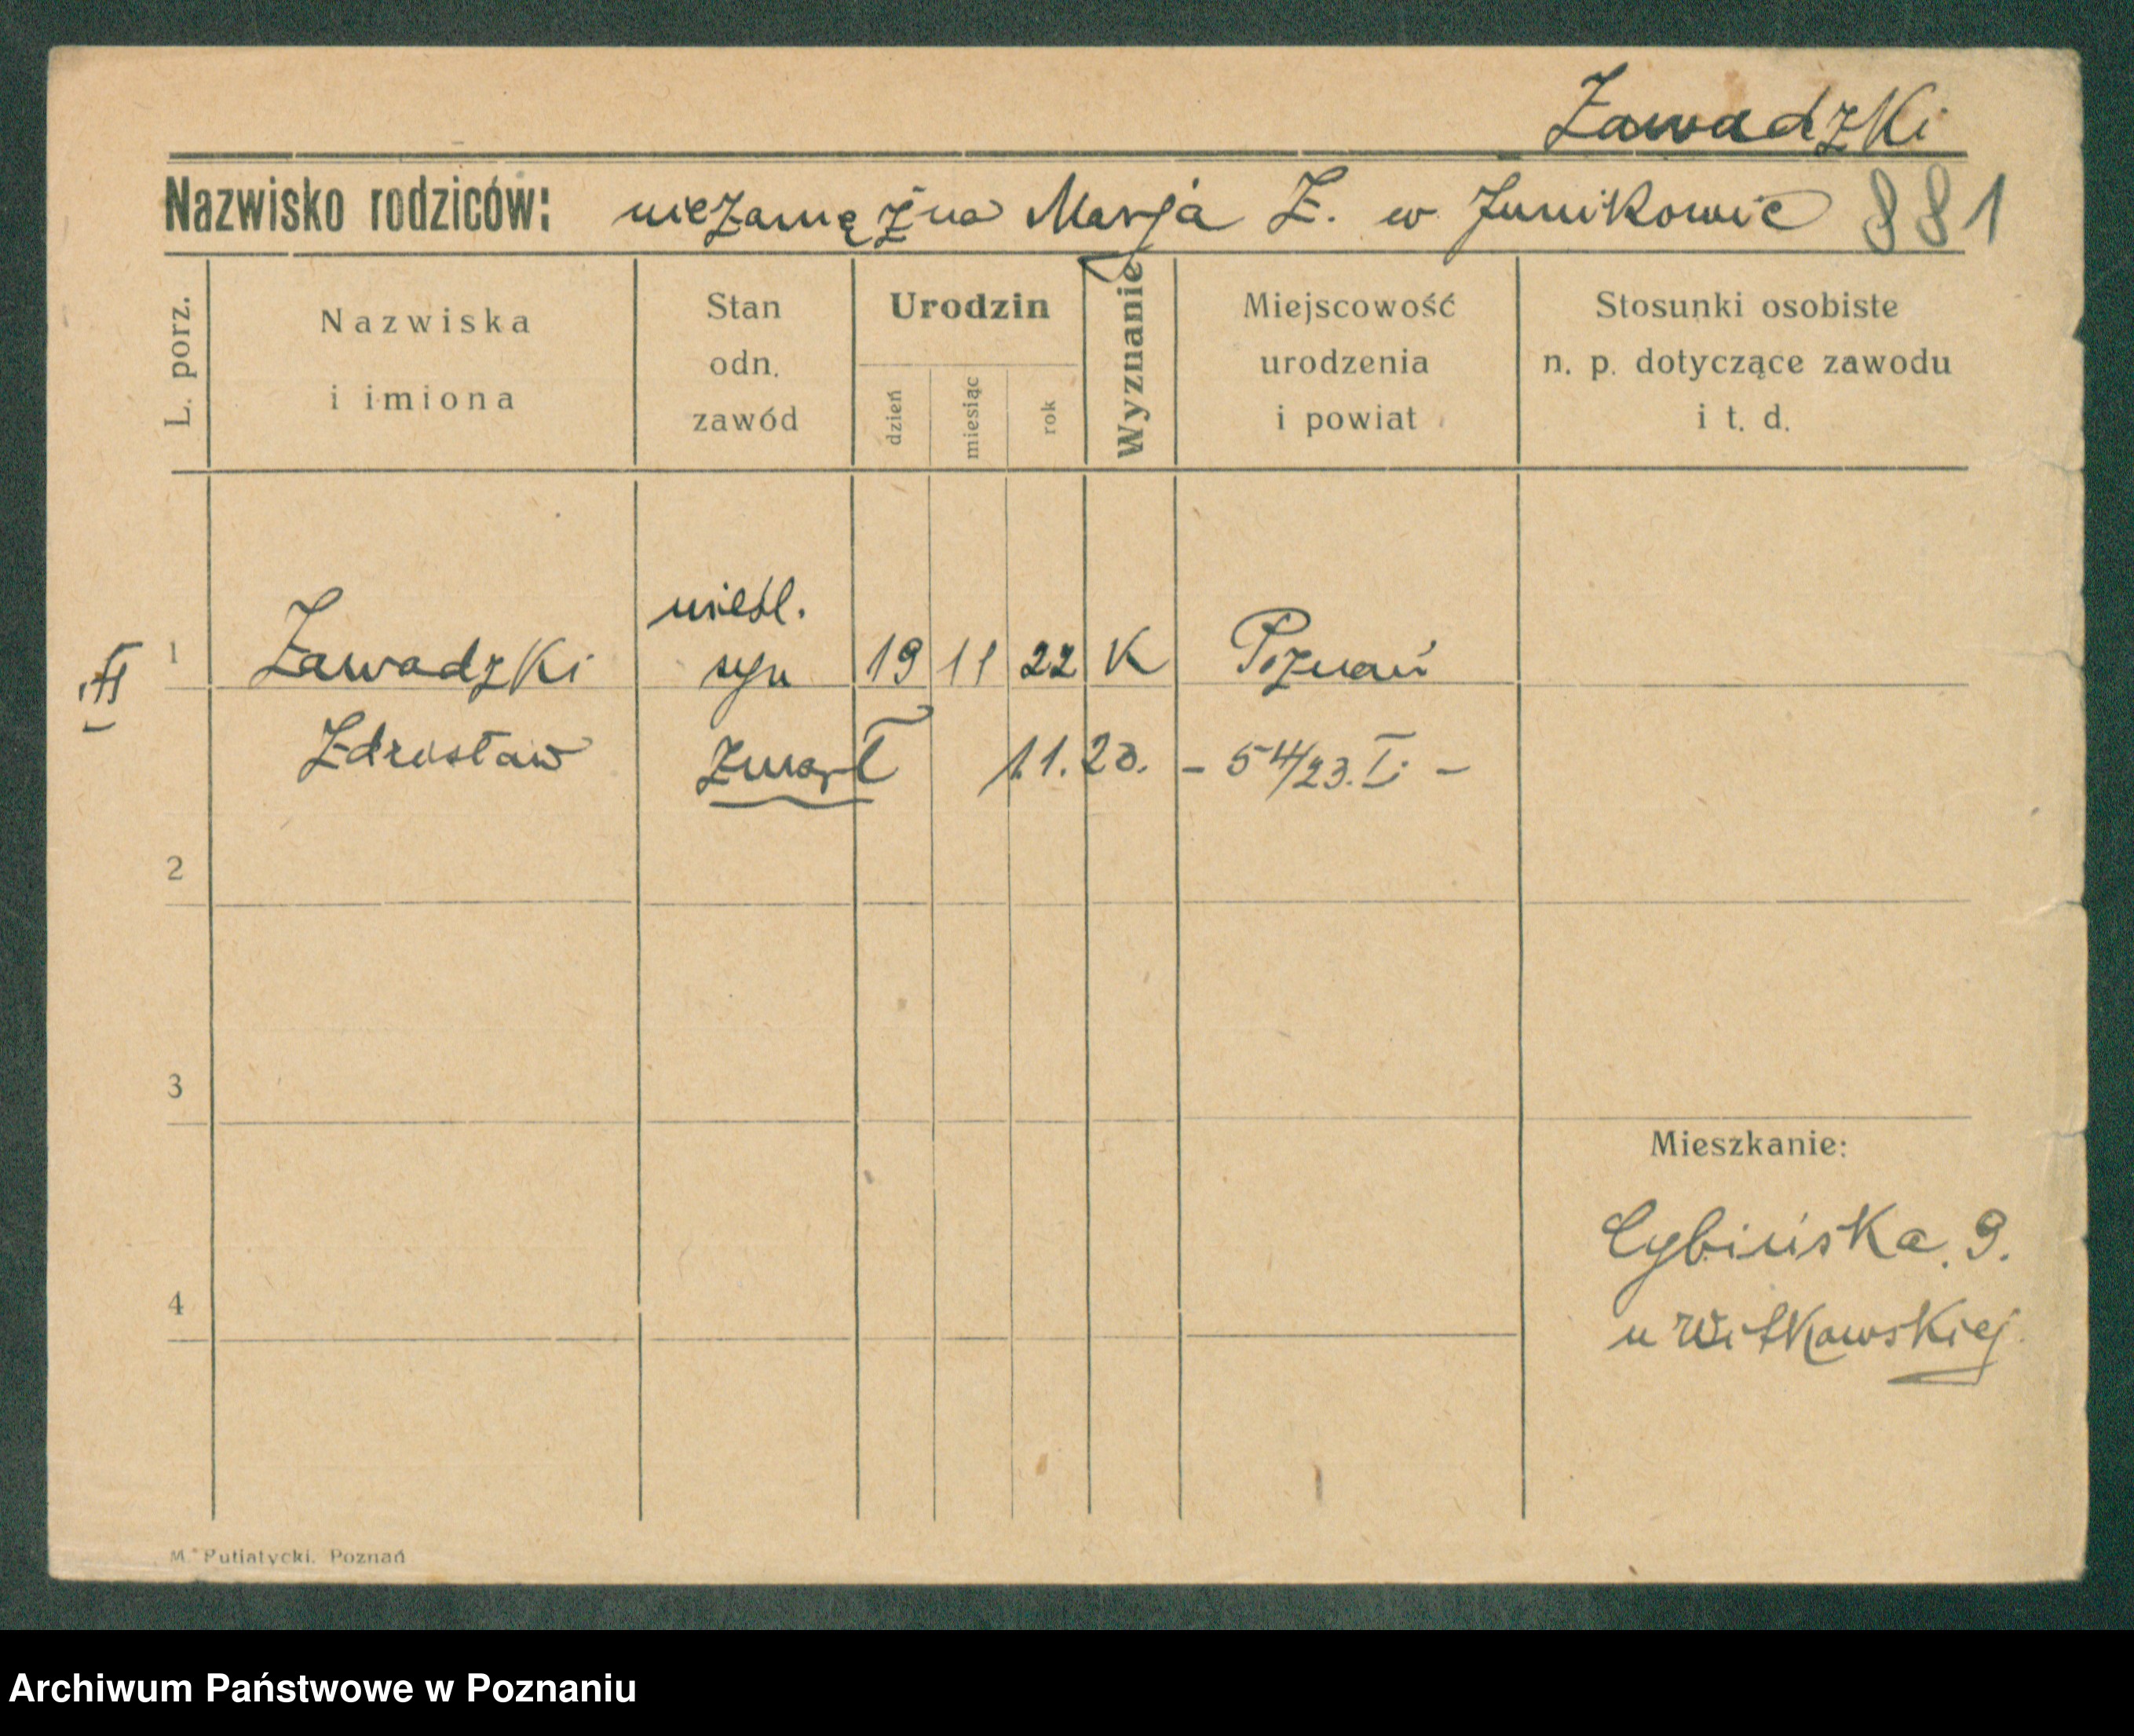 Zawadzki
Nazwisko rodziców: niezamężna Marja Z. w Junikowie 881
L. porz.
Nazwiska
i imiona
Stan
odn.
zawód
Urodzin
dzień
miesiąc
rok
Wyznanie
Miejscowość
urodzenia
i powiat
Stosunki osobiste
n. p. dotyczące zawodu
i t. d.
nieśl.
1 Zawadzki syn 19 11 22 K Poznań
Zdrosław zmarł 1.1.23. - 54/23. I. -
2
3
Mieszkanie:
Cybińska. 9.
4
u Witkowskiej
M. Putiatycki. Poznań
Archiwum Państwowe w Poznaniu